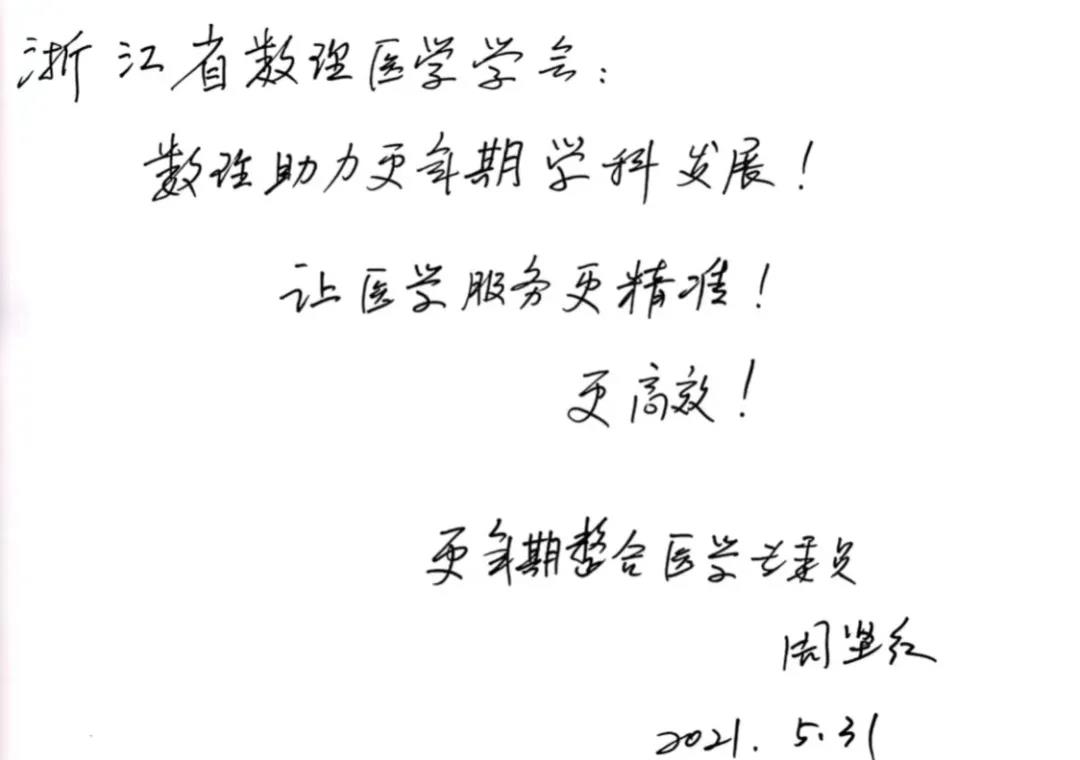 浙江省数理医学学会：
数理助力更年期学科发展！
让医学服务更精准！
更高效！
更年期整合医学专委员
周坚红
2021.5.31